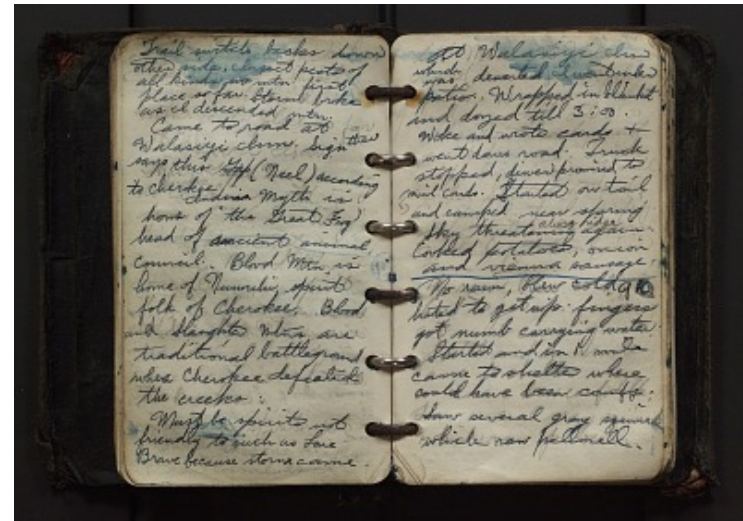 Trail switch backs down
other side, closest posts of
all kinds on mtn. first
place so far. Storm broke
as I descended mtn.
Came to road at
Walasiyi Inn. Sign there
says this Gap (Neel) according
to Cherokee
Indian Myth is
home of the Great Frog
head of ancient animal
Council. Blood Mtn. is
home of Nunnehi, spirit
folk of Cherokee. Blood
and Slaughter Mtns are
traditional battleground
where Cherokee defeated
the creeks.
Must be spirits not
friendly to such as Lone
Brave because storm came.
at Walasiyi Inn
which was deserted. I went under
portion. Wrapped in blanket
and dozed till 3:00.
Woke and wrote cards +
went down road. Truck
stopped, driver promised to
mail cards. Started on trail
and camped near spring
Sky threatening again.
Cooked potatoes, onion
and vienna sausage.
No rain, Blew cold
hated to get up. fingers
got numb carrying water.
Started and in 1. mile
came to shelter where
could have been comfy.
Saw several gray squirrels
which ran pellmell.